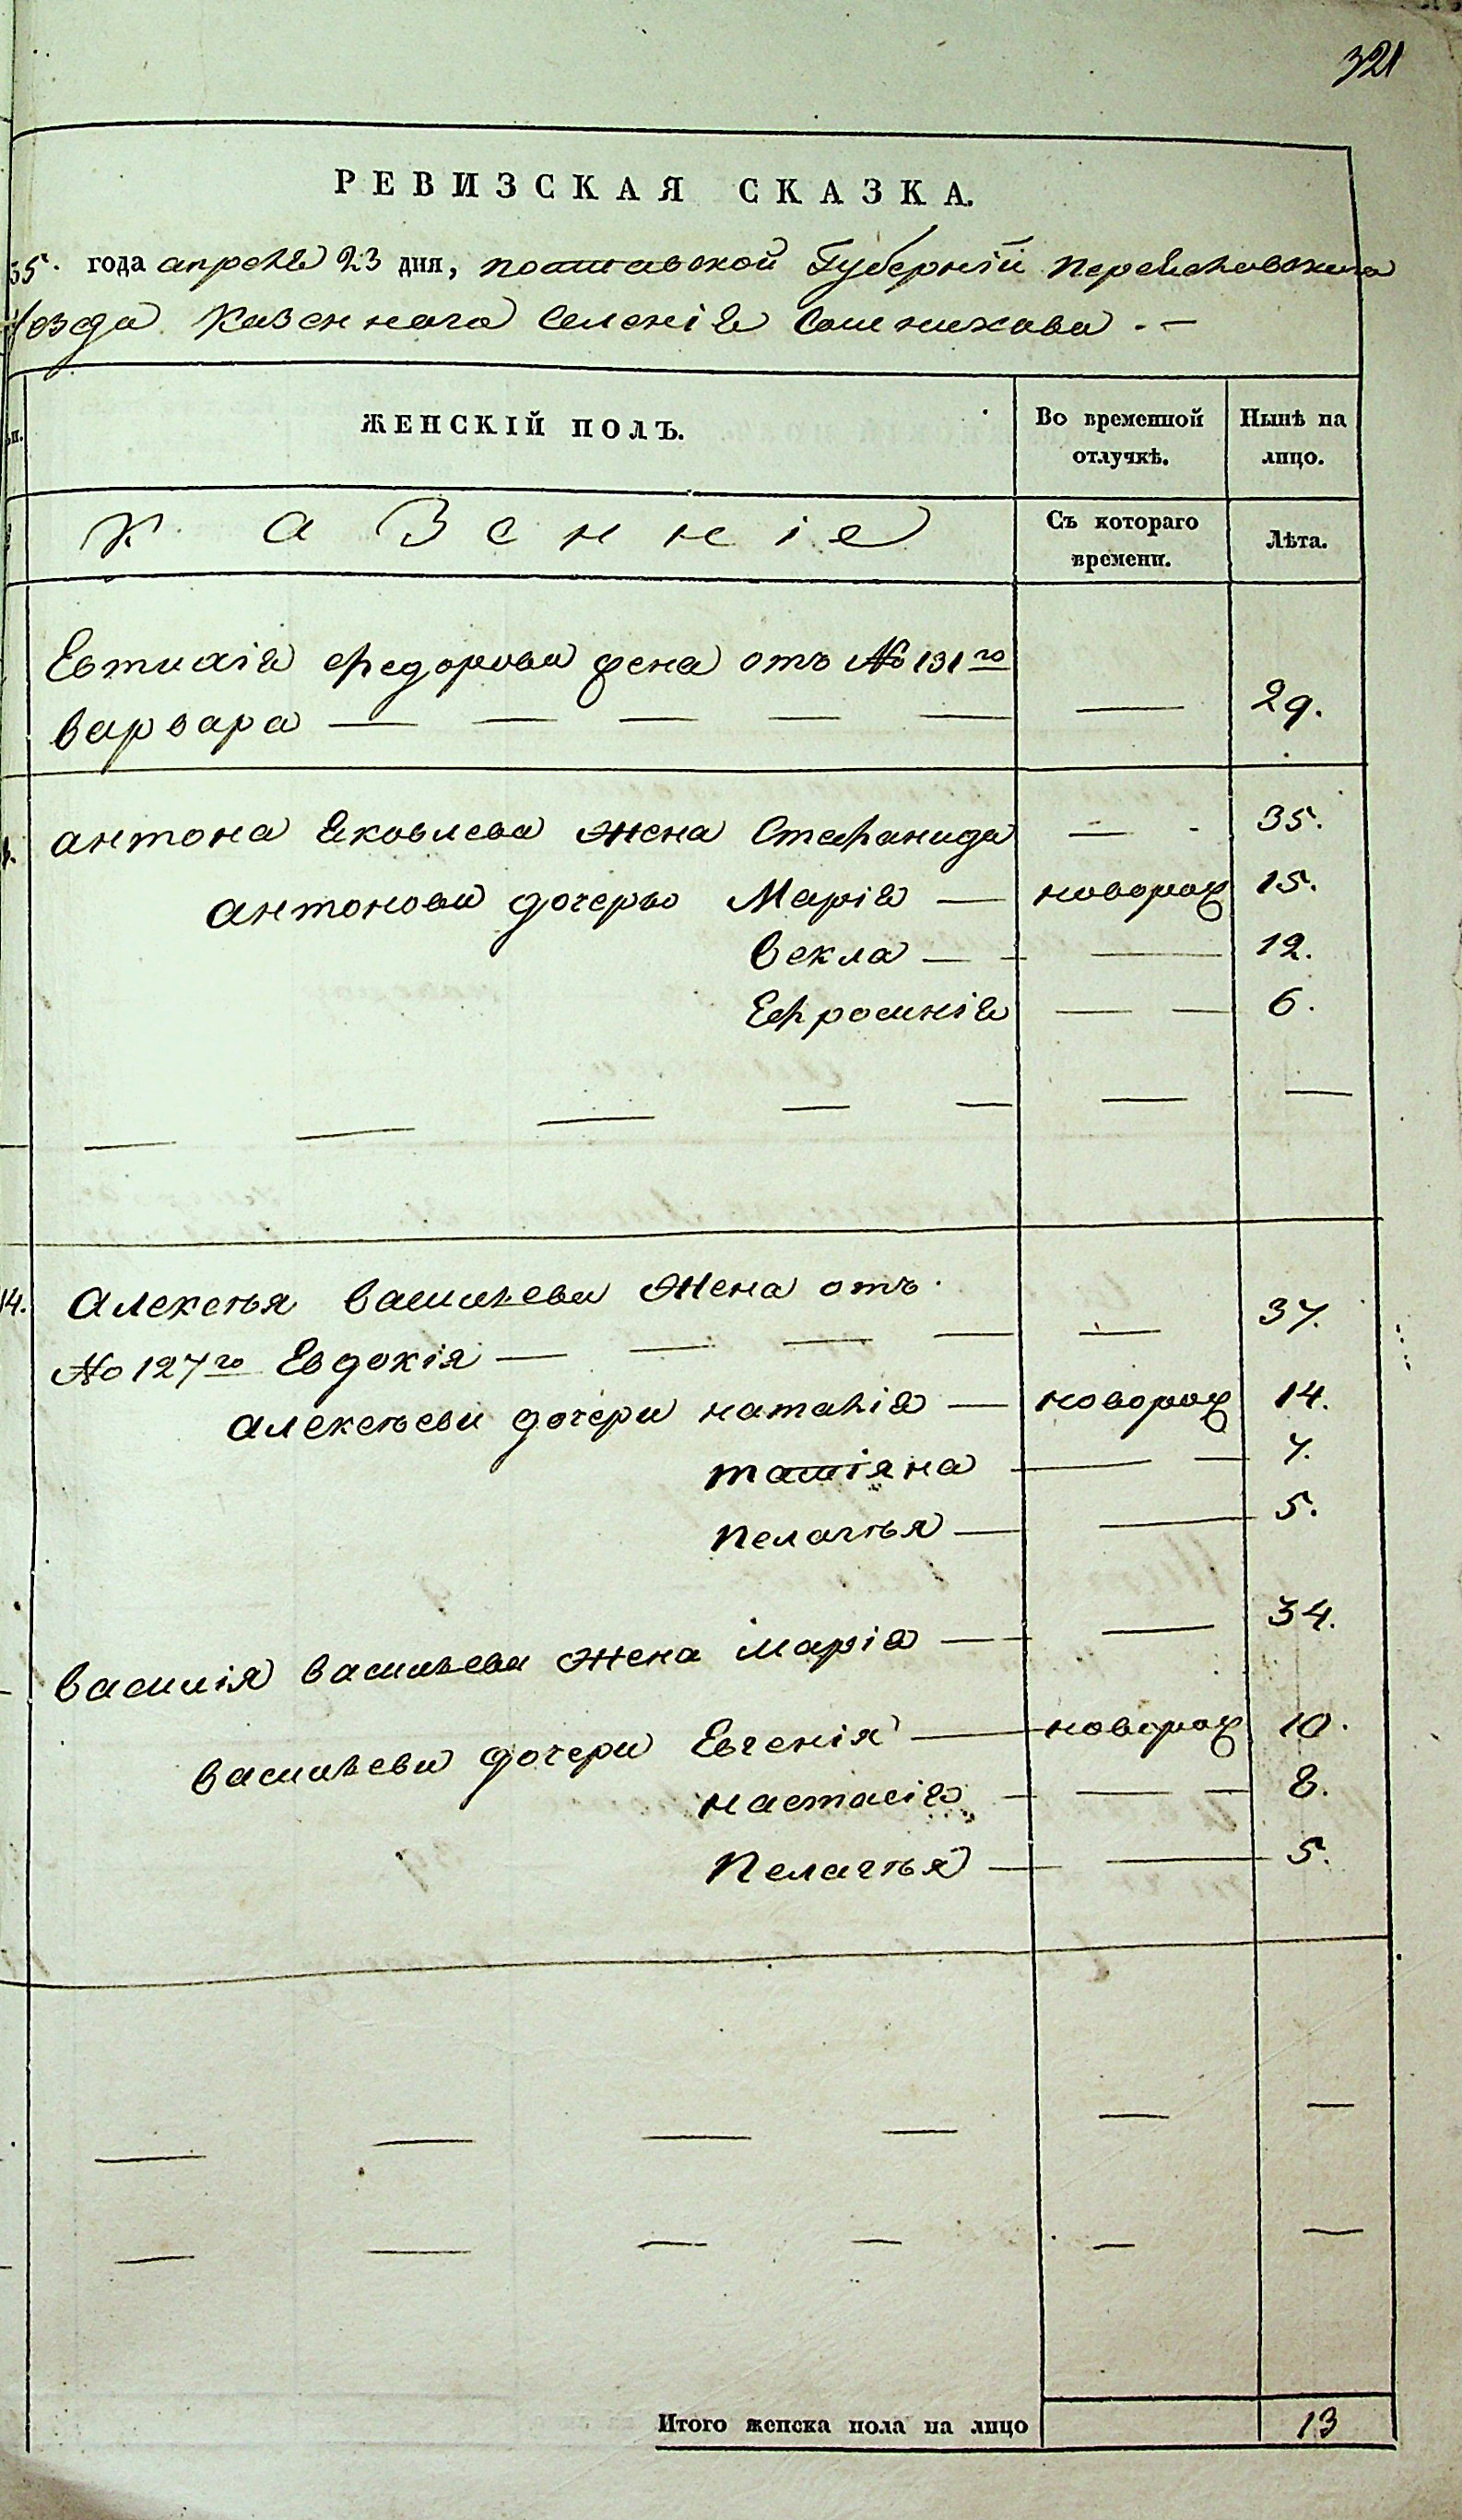 321
РЕВИЗСКАЯ СКАЗКА.
35. года апреля 23 дня, полтавской Губерніи переяславскаго
уезда Казеннаго Селенія Сошникова . —
ЖЕНСКІЙ ПОЛЪ.
Во временной отлучкѣ.
Нынѣ на лицо.
Казенніе
Съ котораго времени.
Лѣта.
Евтихія Федорова жена отъ № 131го
варвара — — — — — — 29.
антона Яковлева жена Стефанида — - 35.
антонови дочерѣ Марія — новорож 15.
векла — — — 12.
Ефросинія — — 6.
— — — — — — —
14. Алексѣя Васильева Жена отъ
№ 127го Евдокія — — — — — 37.
алексѣеви дочери наталія — новорож 14.
татіяна — — 7.
пелагѣя — — 5.
василія васильева жена марія — — 34.
васильеви дочери Евгенія — новорож 10.
настасія — — — 8.
Пелагѣя — — 5.
— — — — — —
— — — — — —
Итого женска пола на лицо 13